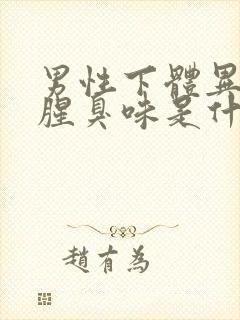 男性下體異
腥臭味是什
趙有為